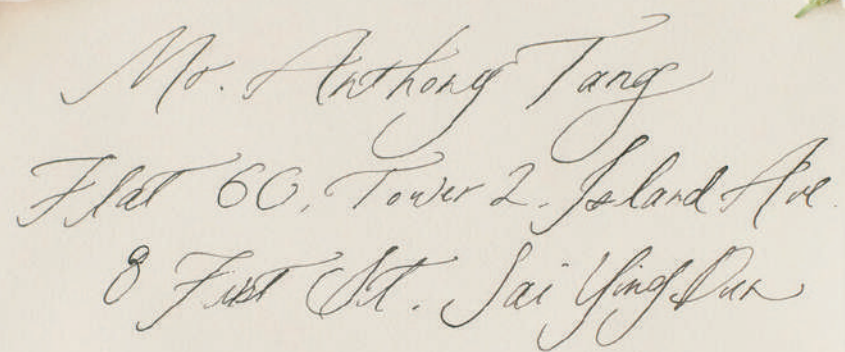 Mr. Anthony Tang
Flat 6C, Tower 2. Island Ave.
8 First St. Sai Ying Pun